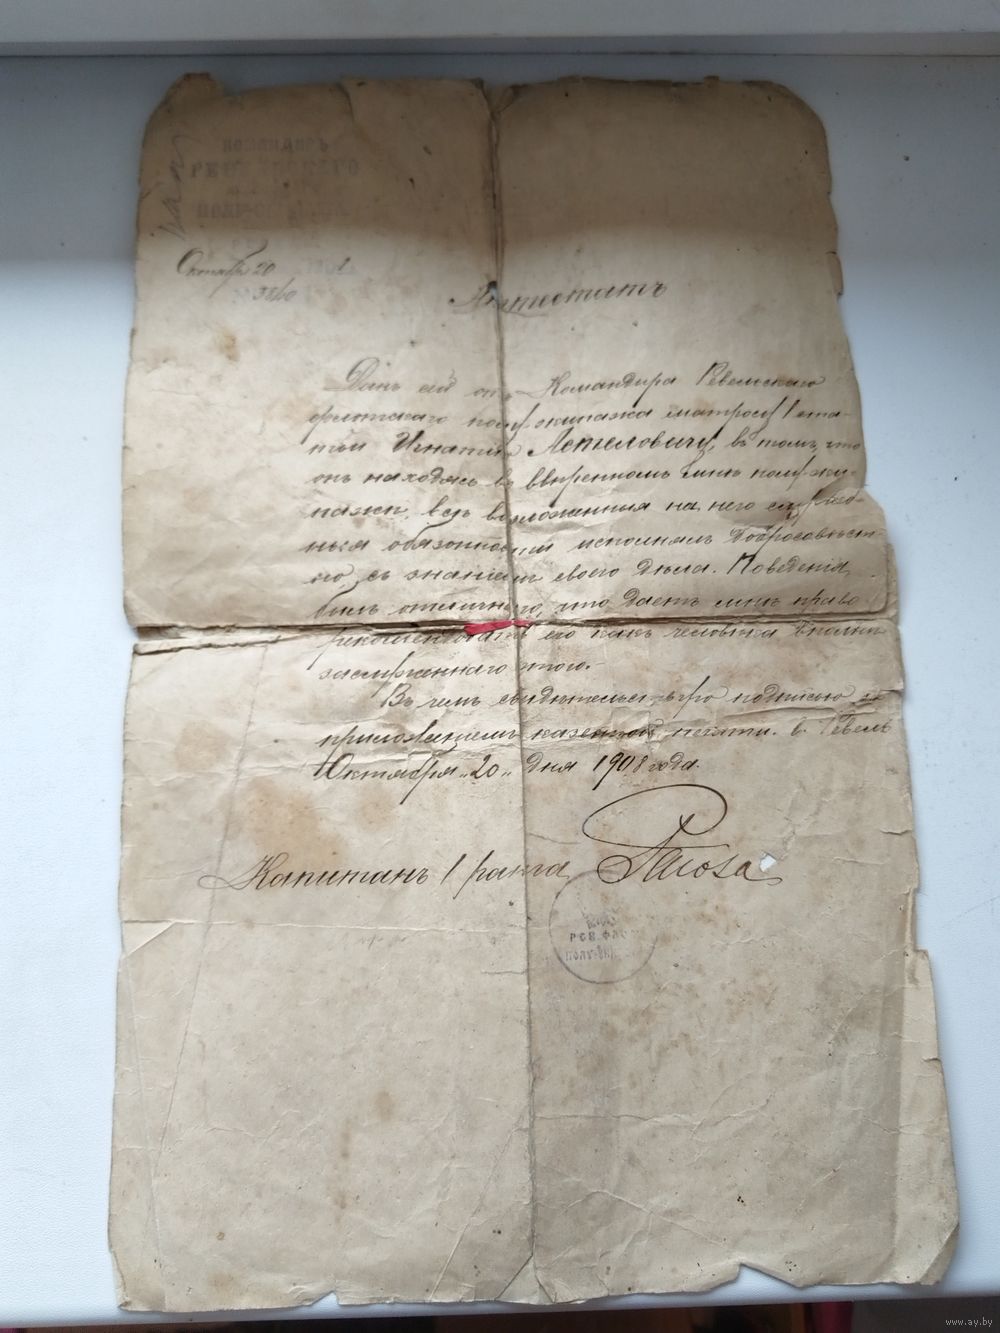 КОМАНДИРЪ
Октябрь 20
№ 3840
Аттестатъ
Данъ сей отъ Командира Ревельскаго
флотскаго полуэкипажа матросу 1 ста-
тьи Игнатію Летеловичу, въ томъ, что
онъ находясь въ ввѣренномъ мнѣ полуэки-
пажѣ, всѣ возложенныя на него служеб-
ныя обязонности исполнялъ добросовѣст
но, съ знаніемъ своего дѣла. Поведенія
былъ отличнаго, что даетъ мнѣ право
рекомендовать его какъ человѣка вполнѣ
заслуженнаго этого.-
Въ чемъ свидѣтельствую подписью и
приложеніемъ казенной печати. г. Ревель
Октября „20„ дня 1908 года.
Капитанъ 1 ранга
РЕВ. ФЛОТ
ПОЛУ-ЭКИ
www.ay.by